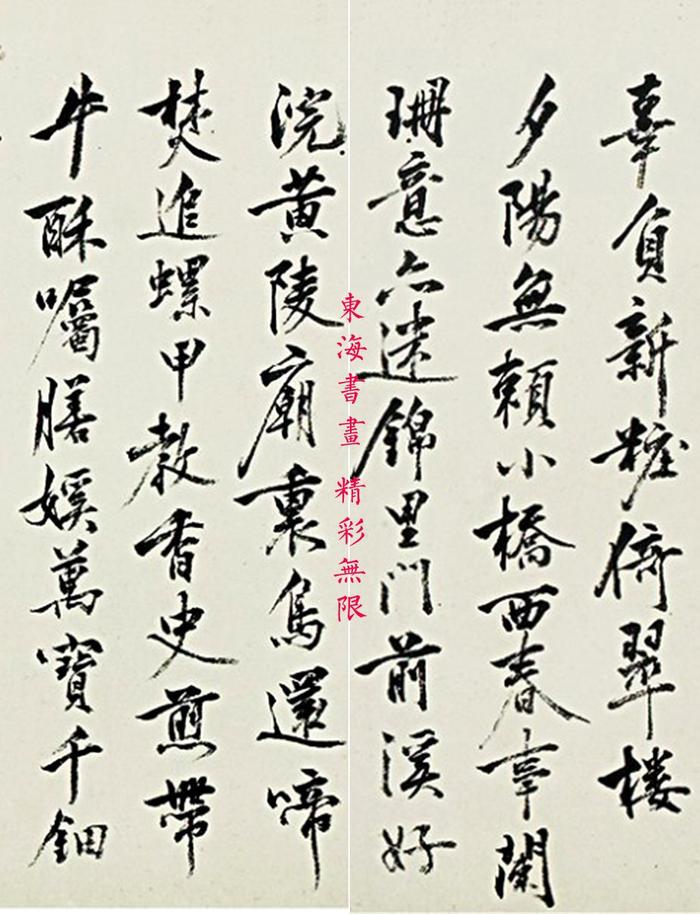 辜負新粧倚翠樓
夕陽無賴小橋西春事闌
珊意亦迷錦里門前溪好
浣黃陵廟裏鳥還啼
焚進螺甲教香史煎帶
牛酥囑膳萬寶千鈿
東海書畫 精彩無限